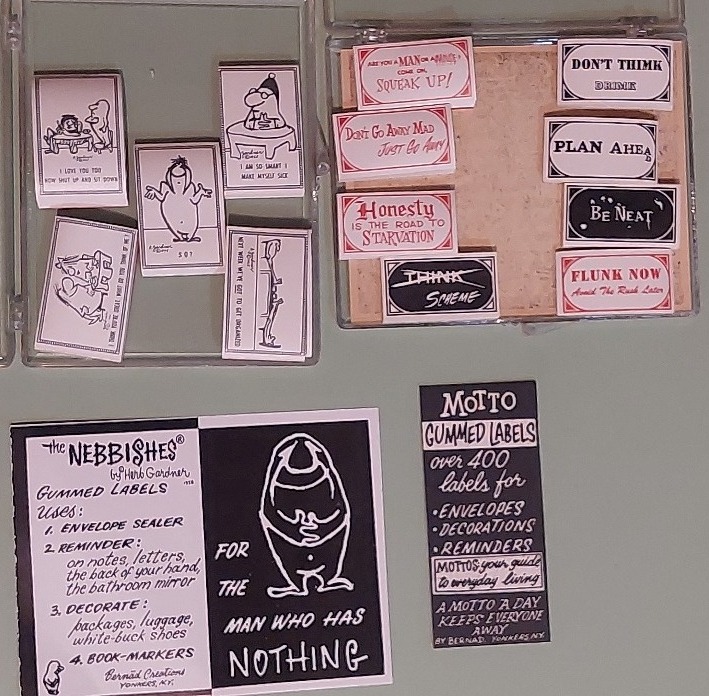 I LOVE YOU TOO
NOW SHUT UP AND SIT DOWN
I AM SO SMART I
MAKE MYSELF SICK
SO?
NEXT WEEK WE'VE GOT TO GET ORGANIZED
ARE YOU A MAN OR A MOUSE?
COME ON,
SQUEAK UP!
DON'T GO AWAY MAD
JUST GO AWAY
Honesty
IS THE ROAD TO
STARVATION
THINK
SCHEME
DON'T THIMK
DRIMK
PLAN AHEAD
BE NEAT
FLUNK NOW
Avoid The Rush Later
the NEBBISHES®
by Herb Gardner
GUMMED LABELS
Uses:
1. ENVELOPE SEALER
2. REMINDER:
on notes, letters,
the back of your hand,
the bathroom mirror
3. DECORATE:
packages, luggage,
white-buck shoes
4. BOOK-MARKERS
Bernad Creations
YONKERS, N.Y.
FOR
THE
MAN WHO HAS
NOTHING
MOTTO
GUMMED LABELS
over 400
labels for
•ENVELOPES
•DECORATIONS
•REMINDERS
MOTTOS-your guide
to everyday living
A MOTTO A DAY
KEEPS EVERYONE
AWAY
BY BERNAD, YONKERS, N.Y.